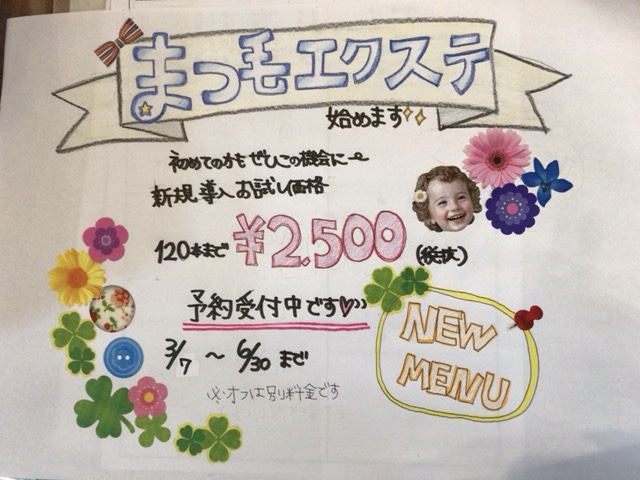 まつ毛エクステ
始めます
初めての方も ぜひこの機会に〜
新規導入お試し価格
120本まで ¥2.500 (税抜)
予約受付中です♡
3/7 〜 6/30 まで
※オフは別料金です
NEW
MENU